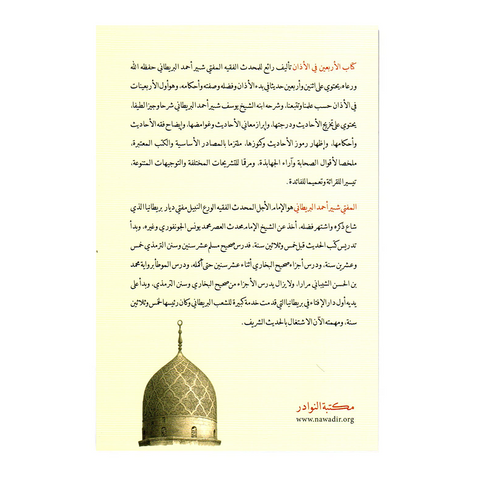 كتاب الأربعين في الأذان تأليف رائع للمحدث الفقيه المفتي شبير أحمد البريطاني حفظه الله
ورعاه يحتوي على اثنين وأربعين حديثا في بدء الأذان وفضله وصفته وأحكامه، وهو أول الأربعينات
في الأذان حسب علمنا وتتبعنا، وشرحه ابنه الشيخ يوسف شبير أحمد البريطاني شرحا وجيزا لطيفا،
يحتوي على تخريج الأحاديث ودرجتها، وإبراز معاني الأحاديث وغوامضها، وإيضاح فقه الأحاديث
وأحكامها، وإظهار رموز الأحاديث وكنوزها، ملتزما بالمصادر الأساسية والكتب المعتبرة،
ملخصا لأقوال الصحابة وآراء الجهابذة، ومرقما للتشريحات المختلفة والتوجيهات المتنوعة،
تيسيرا للقرائة وتعميما للفائدة.
المفتي شبير أحمد البريطاني هو الإمام الأجل المحدث الفقيه الورع النبيل مفتي ديار بريطانيا الذي
شاع ذكره واشتهر فضله، أخذ عن الشيخ الإمام محدث العصر محمد يونس الجونفوري وغيره، وبدأ
تدريس كتب الحديث قبل خمس وثلاثين سنة، فدرس صحيح مسلم عشر سنين وسنن الترمذي خمس
وعشرين سنة، ودرس أجزاء صحيح البخاري أثناء عشر سنين حتى أكمله، ودرس الموطأ برواية محمد
بن الحسن الشيباني مرارا، ولا يزال يدرس الأجزاء من صحيح البخاري وسنن الترمذي، وبدأ على
يديه أول دار الإفتاء في بريطانيا التي قدمت خدمة كبيرة للشعب البريطاني وكان رئيسها خمس وثلاثين
سنة، ومهمته الآن الاشتغال بالحديث الشريف.
مكتبة النوادر
www.nawadir.org